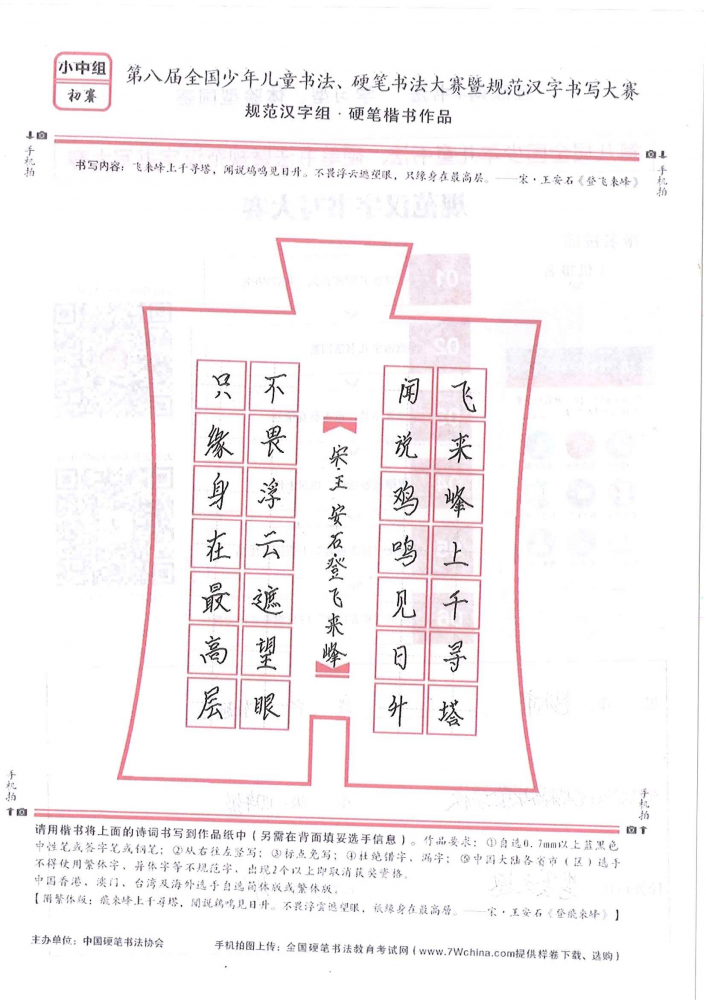 小中组
初赛
第八届全国少年儿童书法、硬笔书法大赛暨规范汉字书写大赛
规范汉字组·硬笔楷书作品
手机拍
手机拍
书写内容：飞来峰上千寻塔，闻说鸡鸣见日升。不畏浮云遮望眼，只缘身在最高层。——宋·王安石《登飞来峰》
飞来峰上千寻塔
闻说鸡鸣见日升
宋·王安石登飞来峰
不畏浮云遮望眼
只缘身在最高层
手机拍
手机拍
请用楷书将上面的诗词书写到作品纸中（另需在背面填妥选手信息）。作品要求：①自选0.7mm以上蓝黑色
中性笔或签字笔或钢笔；②从右往左竖写；③标点免写；④杜绝错字、漏字；⑤中国大陆各省市（区）选手
不得使用繁体字、异体字等不规范字，出现2个以上即取消获奖资格。
中国香港、澳门、台湾及海外选手自选简体版或繁体版。
【附繁体版：飛來峰上千尋塔，聞説鷄鳴見日昇。不畏浮雲遮望眼，祇緣身在最高層。——宋·王安石《登飛來峰》】
主办单位：中国硬笔书法协会
手机拍图上传：全国硬笔书法教育考试网（www.7Wchina.com提供样卷下载、选购）